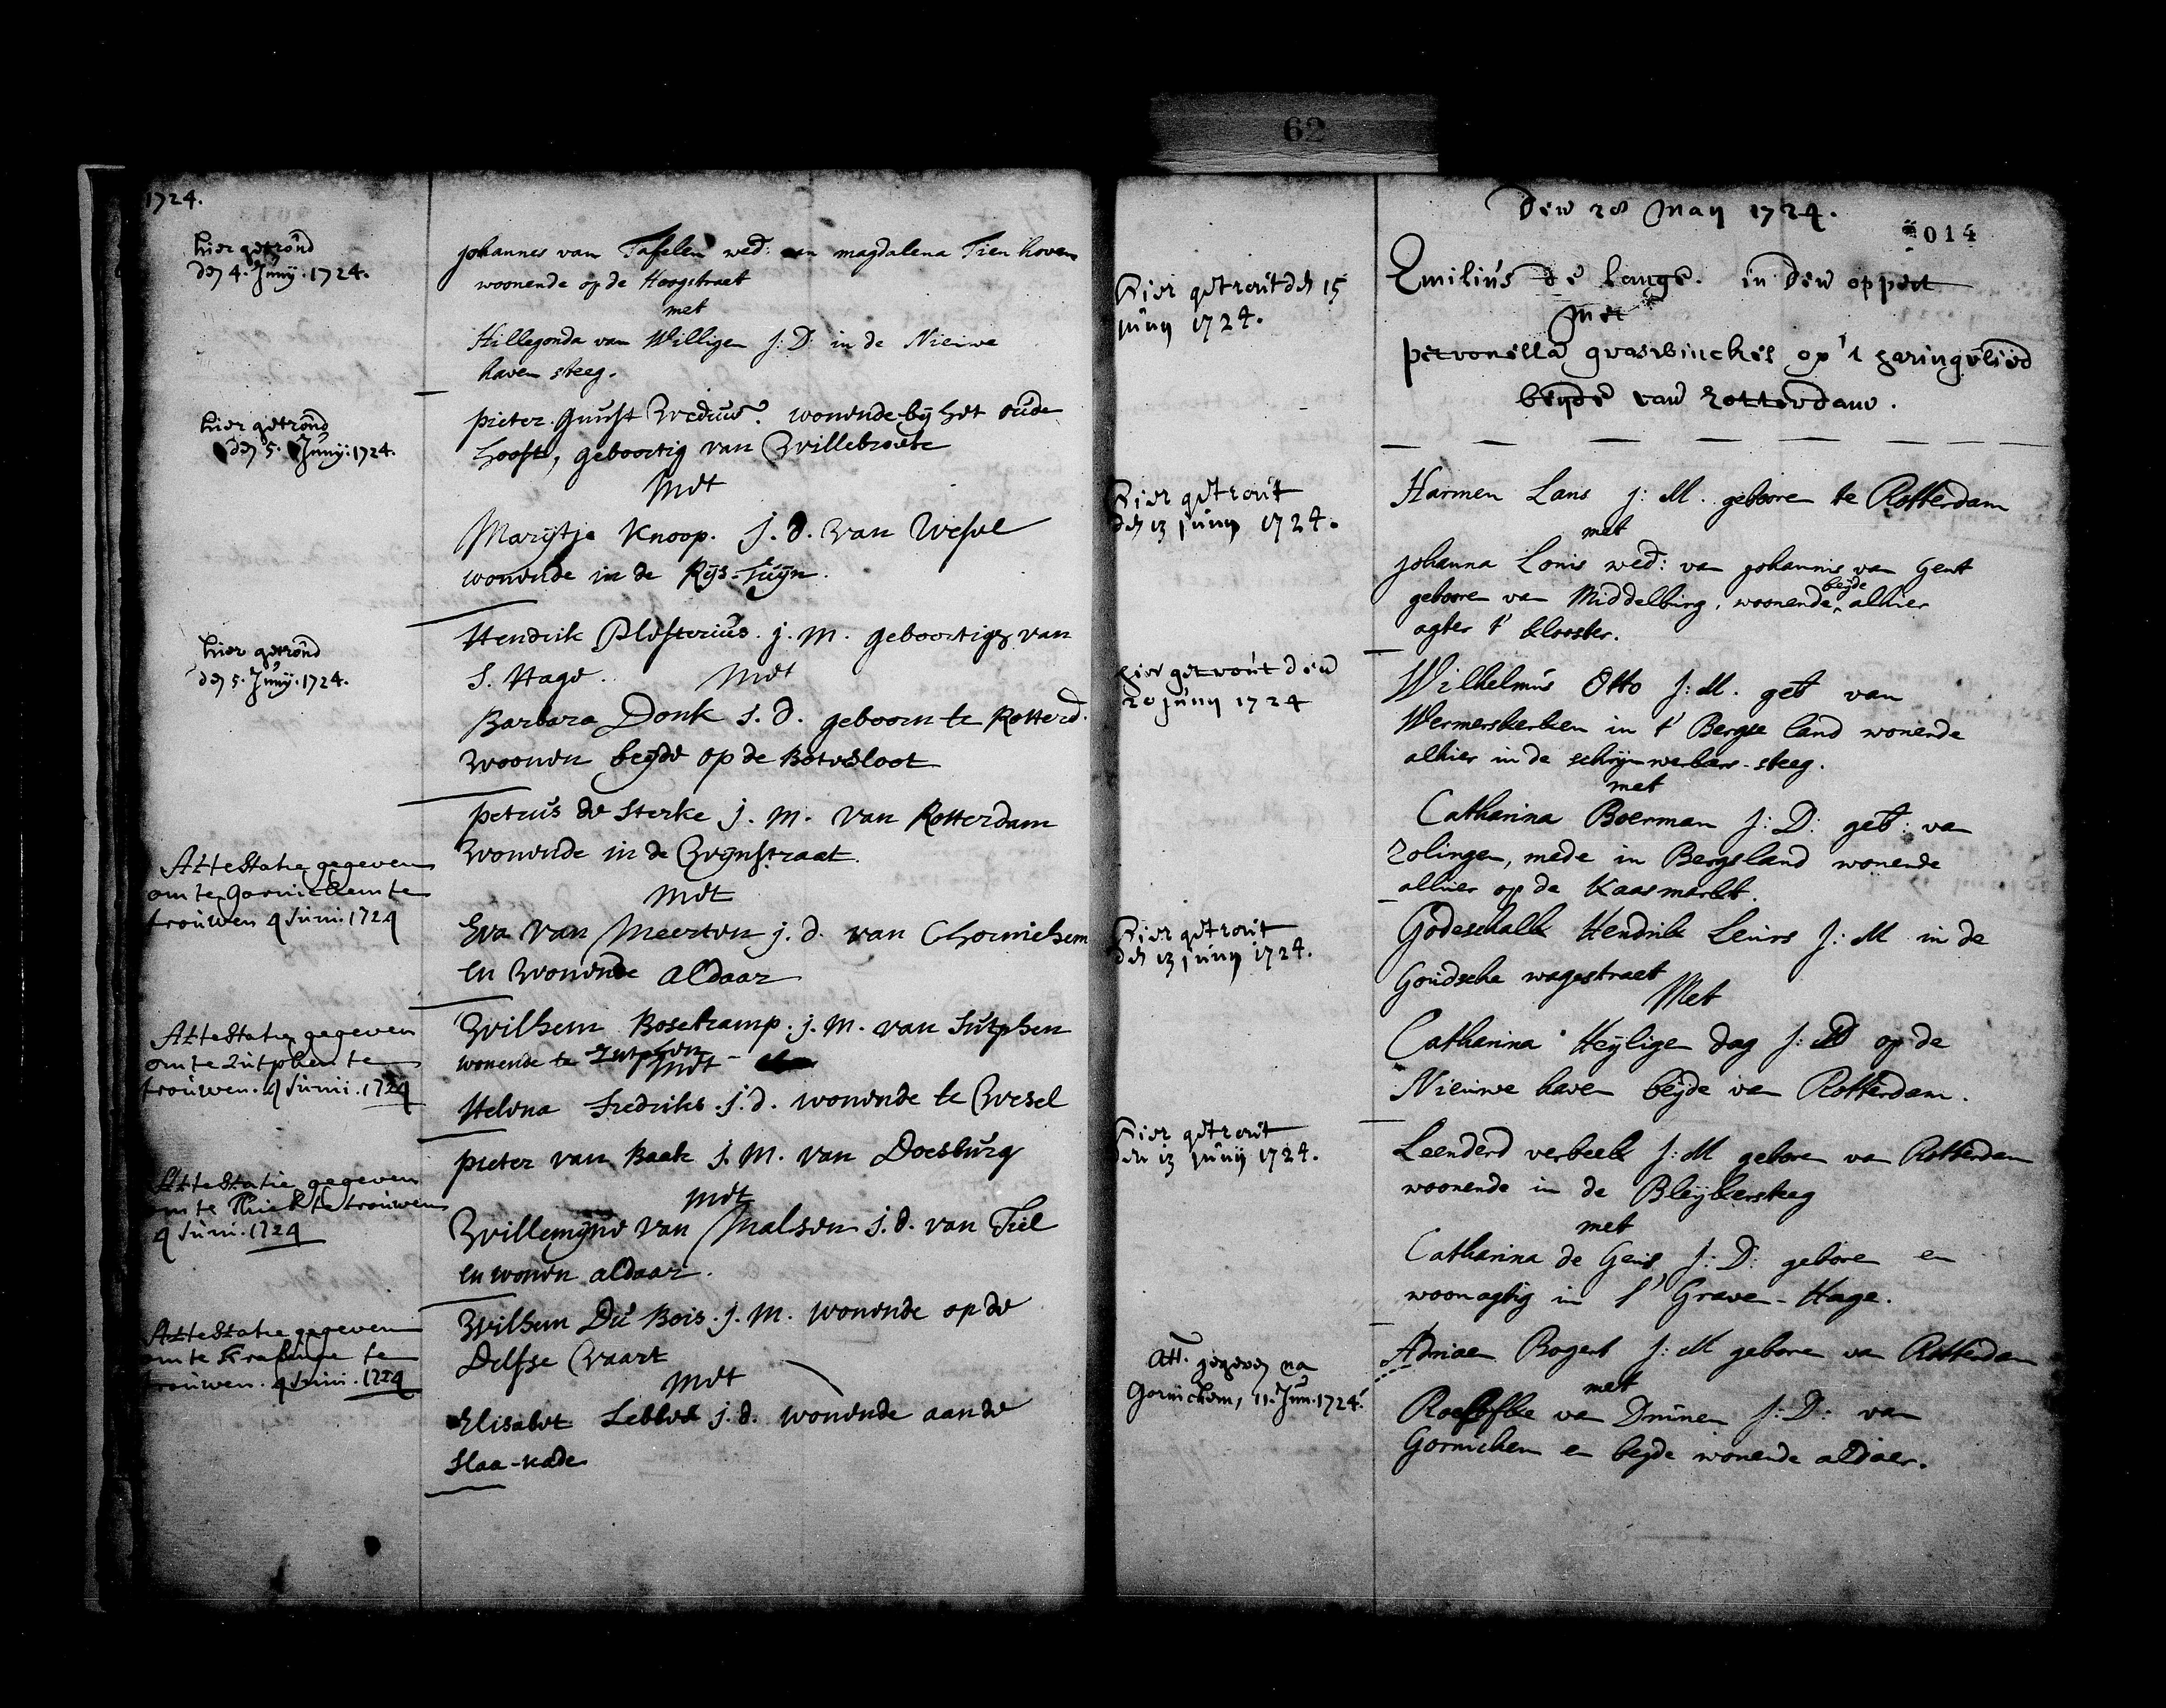 62
1724.
hier getroud
den 4. Junij. 1724.
Johannes van Tafelen wed: van magdalena Tienhoven
woonende op de Hoogstraet
met
Hillegonda van Willigen J: D: in de Nieuwe
haven steeg.
hier getroud
den 5. Junij. 1724.
pieter wonende bij het oude
hooft, geboortig van Willebroek
met
Marijtje Knoop. J. d. van Wesel
wonende in de Rijs-Tuijn.
hier getroud
den 5. Junij. 1724.
Hendrik j. m. geboortig van
S. Hage. met
Barbara Donk J. d. gebooren te Rotterd.
woonen beijde op de Botersloot
Attestatie gegeven
om te Gornichem te
trouwen 4 Juni. 1724
petrus de Sterke j. m. van Rotterdam
wonende in de Wijnstraat.
met
Eva van Meerten j. d. van Ghornichem
en wonende aldaar
Attestatie gegeven
om te Zutphen te
trouwen. 4 Junii. 1724
Wilhem Bosekamp. j. m. van Sutphen
wonende te Zutphen
met
Helena Fredriks. j. d. wonende te Wesel
Attestatie gegeven
om te Thiel te trouwen
4 Juni. 1724
pieter van Baak J. M. van Doesburg
met
Willemijne van Malsen j. d. van Tiel
en wonen aldaar.
Attestatie gegeven
om te te
trouwen. 4 Juni. 1724
Wilhem Du Bois. j. m. wonende op de
Delfse Vaart
met
Elisabet j. d. wonende aan de
Slaa-kade
Den 28 May 1724.
014
Hier getrout den 15
juny 1724.
Emilius de lange. in den oppert
met
petronella graswinckel op 't haringvlied
beyde van Rotterdam.
Hier getrout
den 13 juny 1724.
Harmen Lans j: M. geboore te Rotterdam
met
Johanna Lonis wed: van Johannis van Gent
geboore van Middelburg, woonende beyde alhier
agter t' klooster.
hier getrout den
20 juny 1724
Wilhelmus Otto J: M. geb van
Wermerskerken in t' Bergse land wonende
alhier in de schrijnwerkers-steeg.
met
Catharina Boerman J: D: geb: van
Zolingen, mede in Bergsland wonende
alhier op de Kaasmarkt.
Hier getrout
den 13 juny 1724.
Godeschalk Hendrik Leurs J: M in de
Goudsche wagestraet
Met
Catharina Heylige dag J: D op de
Nieuwe haven beyde van Rotterdam.
Hier getrout
den 13 juny 1724.
Leenderd verbeek J: M gebore van Rotterdam
woonende in de Bleykersteeg
met
Catharina de Geus J: D: gebore en
woonagtig in s' Graven-Hage.
Att. gegeven na
Gornichem, 11. Jun. 1724.
Adriaen Bogert J: M gebore van Rotterdam
met
Roelofke van Drunen J: D: van
Gornichem en beyde wonende aldaer.